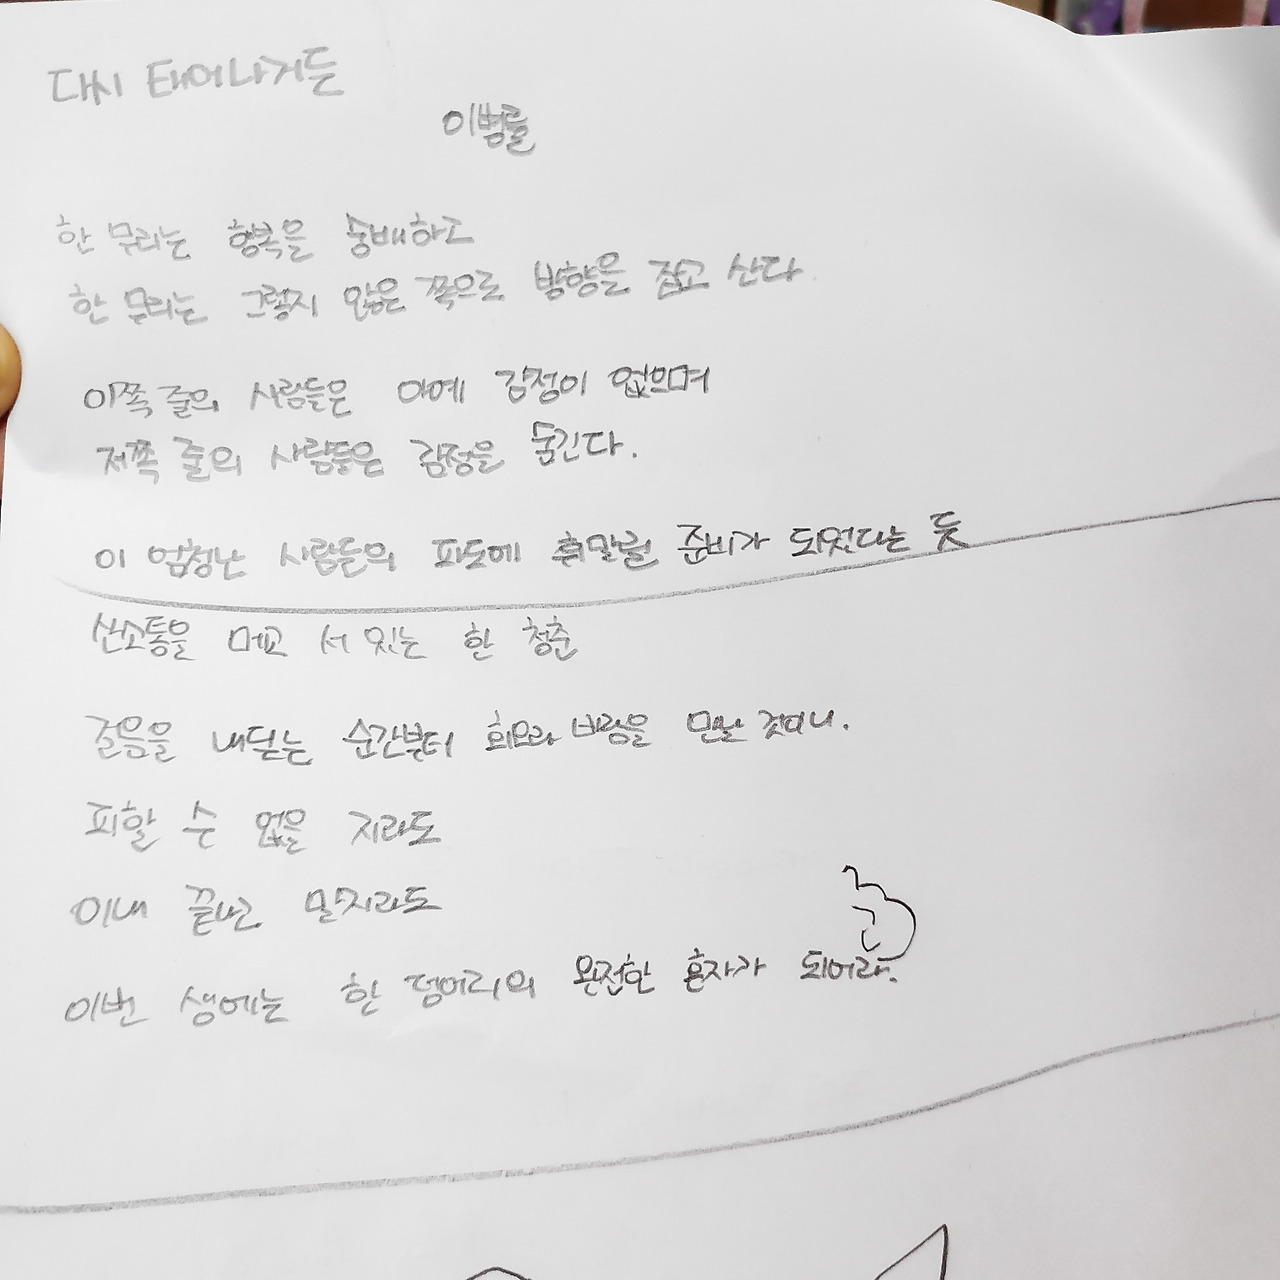 다시 태어나거든
이병률
한 무리는 행복을 숭배하고
한 무리는 그렇지 않은 쪽으로 방향을 잡고 산다
이쪽 줄의 사람들은 아예 감정이 없으며
저쪽 줄의 사람들은 감정을 숨긴다.
이 엄청난 사람들의 파도에 휘말릴 준비가 되었다는 듯
산소통을 메고 서 있는 한 청춘
걸음을 내딛는 순간부터 회오리 바람을 만날 것이니.
피할 수 없을 지라도
이내 끝나고 말지라도
이번 생에는 한 덩어리의 완전한 혼자가 되어라.